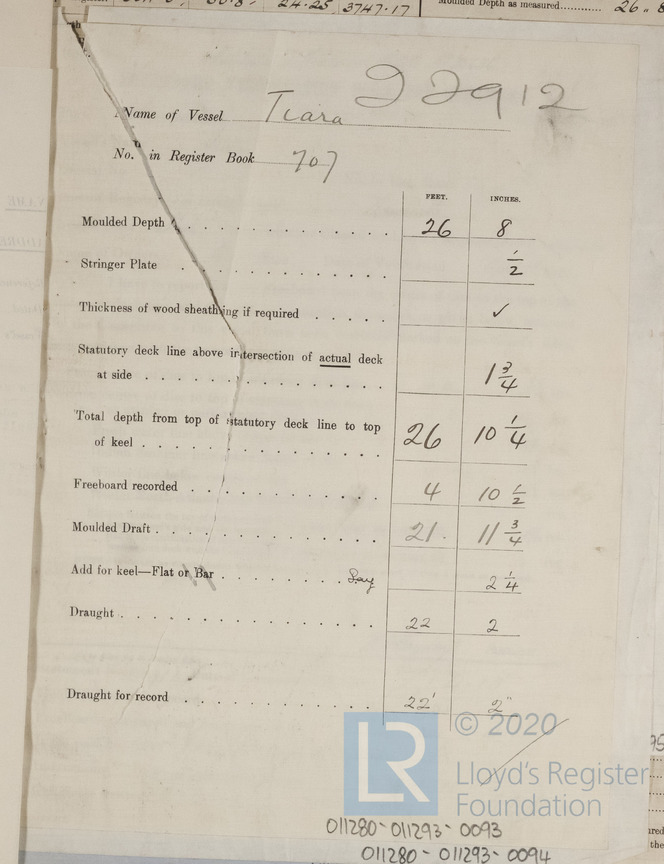 24.25 3747.17
Moulded Depth as measured............ 26 " 8
22912
Name of Vessel Tiara
No. in Register Book 707
FEET. INCHES.
Moulded Depth . . . . . . . . . . . . . 26 8
Stringer Plate . . . . . . . . . . . . 1/2
Thickness of wood sheathing if required . . . . . ✓
Statutory deck line above intersection of actual deck
at side . . . . . . . . . . . . . . 1 3/4
Total depth from top of statutory deck line to top
of keel . . . . . . . . . . . . . . 26 10 1/4
Freeboard recorded . . . . . . . . . . . 4 10 1/2
Moulded Draft . . . . . . . . . . . . . 21. 11 3/4
Add for keel—Flat or Bar . . . . . . . . Say 2 1/4
Draught . . . . . . . . . . . . . . . 22 2
Draught for record . . . . . . . . . . . 22' 2"
LR
© 2020
Lloyd's Register
Foundation
011280-011293-0093
011280-011293-0094